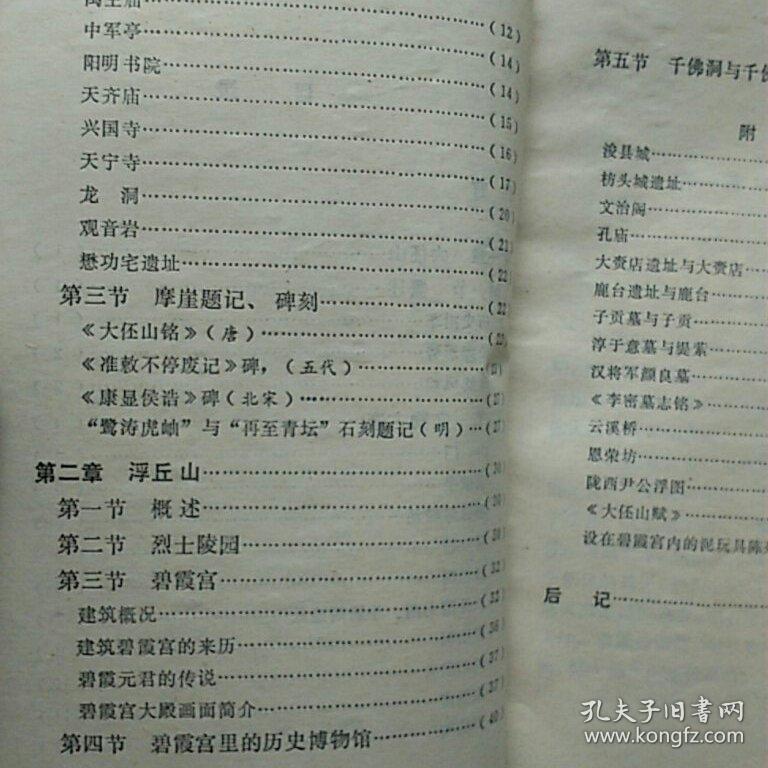 禹王庙
中军亭……(12)
阳明书院……(14)
天齐庙……(14)
兴国寺……(15)
天宁寺……(16)
龙 洞……(17)
观音岩……(20)
懋功宅遗址……(21)
……(22)
第三节 摩崖题记、碑刻……(22)
《大伾山铭》(唐)……
《准敕不停废记》碑,(五代)……
《康显侯诰》碑(北宋)……(27)
“鹭涛虎岫”与“再至青坛”石刻题记(明)…(27)
第二章 浮丘山……(30)
第一节 概述……(30)
第二节 烈士陵园……(30)
第三节 碧霞宫……(32)
建筑概况……(32)
建筑碧霞宫的来历……(36)
碧霞元君的传说……(37)
碧霞宫大殿画面简介……(37)
第四节 碧霞宫里的历史博物馆……(40)
第五节 千佛洞与千佛
附
浚县城……
枋头城遗址……
文治阁……
孔庙……
大赉店遗址与大赉店……
鹿台遗址与鹿台……
子贡墓与子贡……
淳于意墓与缇萦……
汉将军颜良墓……
《李密墓志铭》……
云溪桥……
恩荣坊……
陇西尹公浮图……
《大伾山赋》……
设在碧霞宫内的泥玩具陈列
后记……
孔夫子旧书网
www.kongfz.com